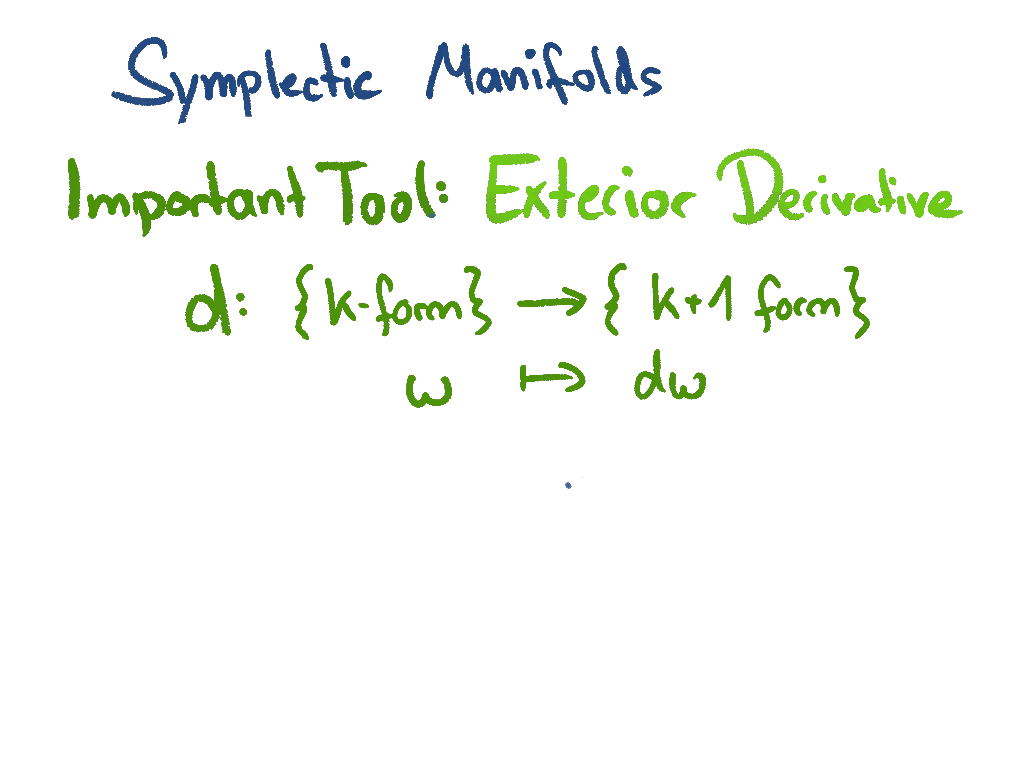 Symplectic Manifolds
Important Tool: Exterior Derivative
d: {k-form} → {k+1 form}
ω ↦ dω